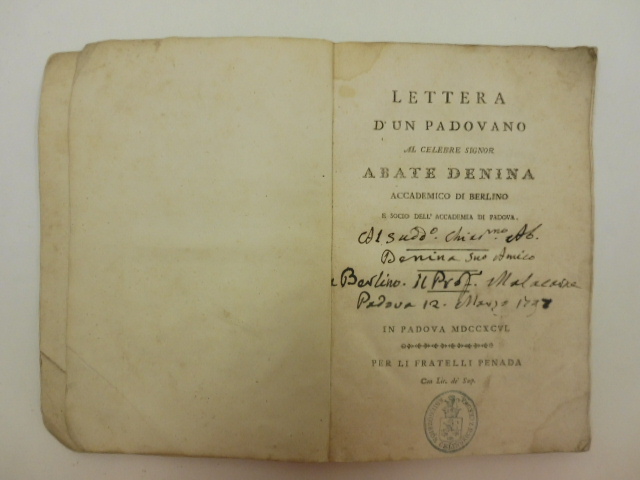 LETTERA
D'UN PADOVANO
AL CELEBRE SIGNOR
ABATE DENINA
ACCADEMICO DI BERLINO
E SOCIO DELL'ACCADEMIA DI PADOVA.
Al Sudd.o Chiar.mo Ab.
Denina Suo Amico
a Berlino. Il Prof. Malacarne
Padova 12. Marzo 1797
IN PADOVA MDCCXCVI.
PER LI FRATELLI PENADA
Con Lic. de' Sup.